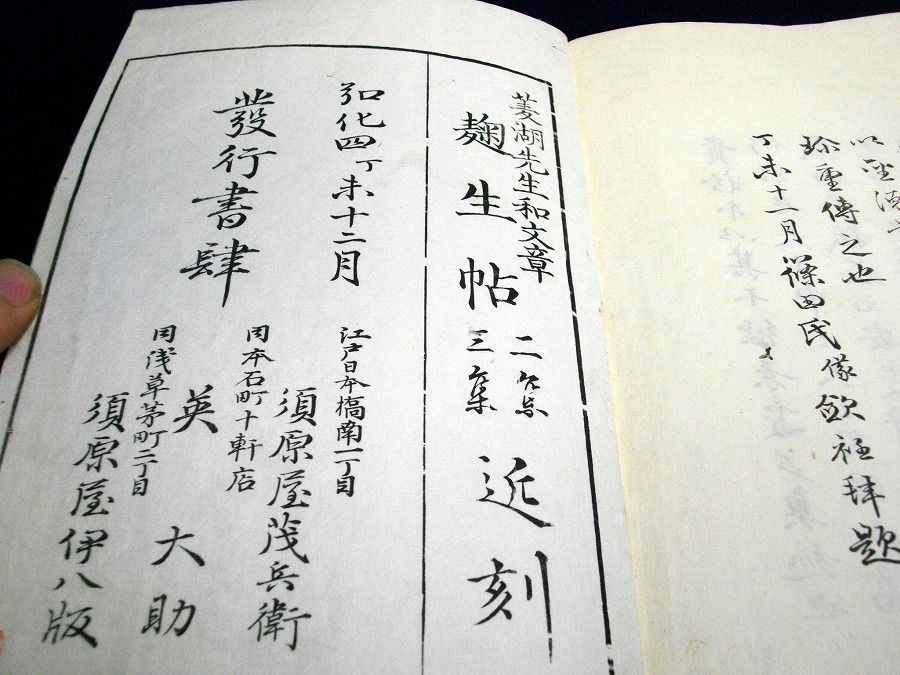 珍重傳之也
丁未十一月篠田氏拜題
菱湖先生和文章
麹生帖 二集 三集 近刻
弘化四丁未十二月
江戸日本橋南一丁目
須原屋茂兵衛
發行書肆
同本石町十軒店
英大助
同浅草茅町二丁目
須原屋伊八版